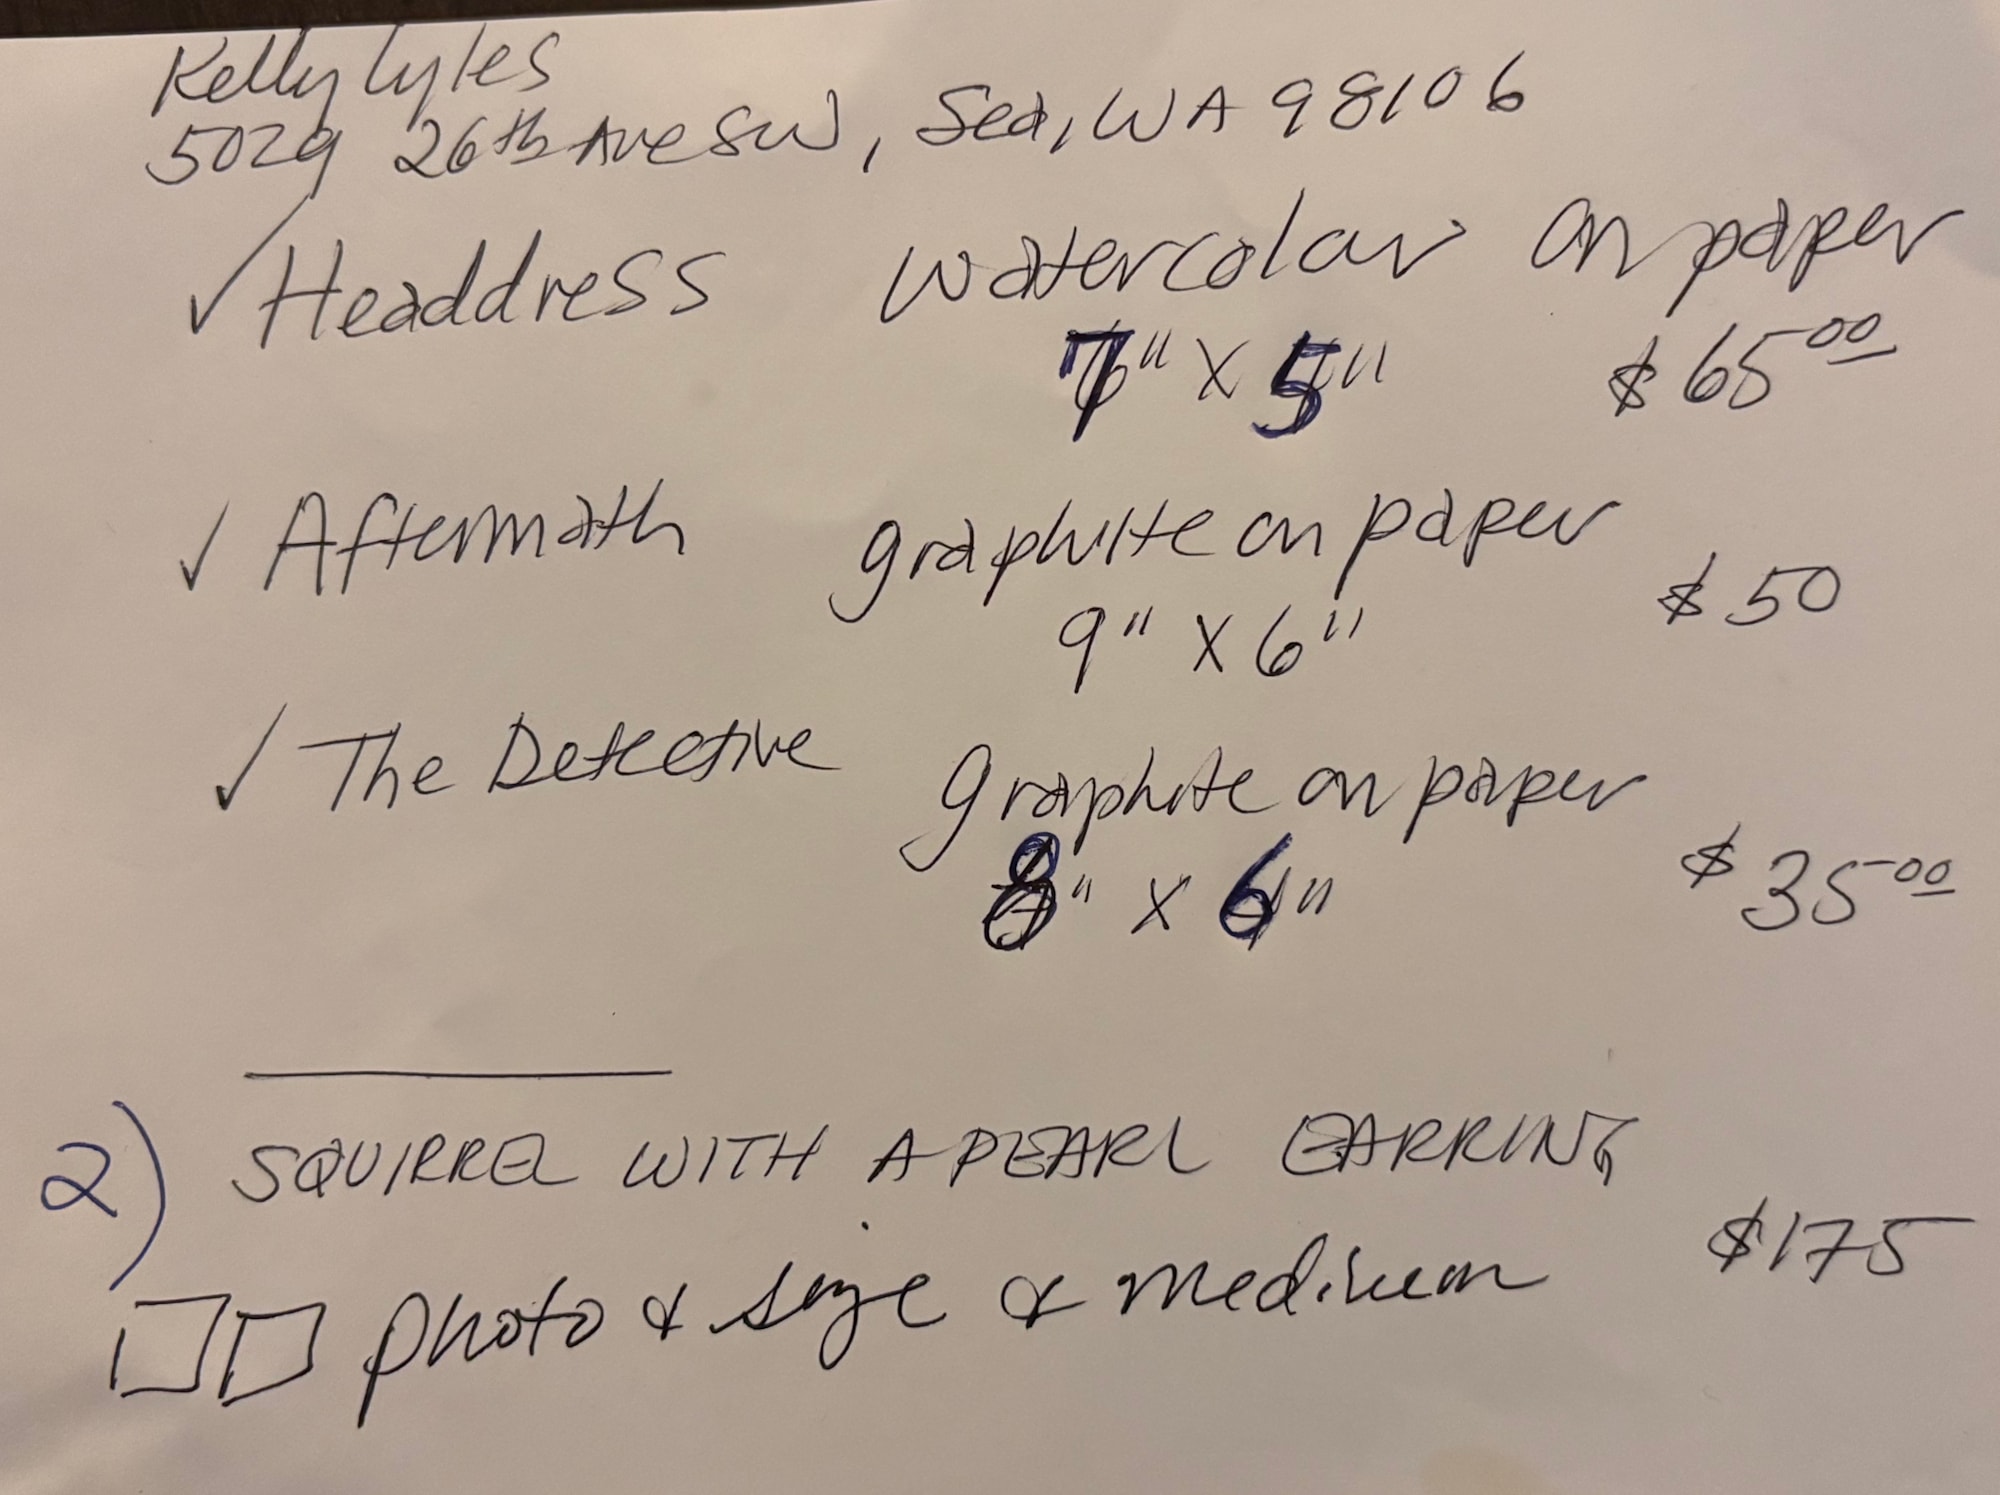 Kelly Lyles
5029 26th Ave SW, Sea, WA 98106
✓ Headdress watercolor on paper
7" X 5" $65.00
✓ Aftermath graphite on paper
9" X 6" $50
✓ The Detective graphite on paper
8" X 6" $35.00
2) SQUIRREL WITH A PEARL EARRING
$175
photo & size & medium